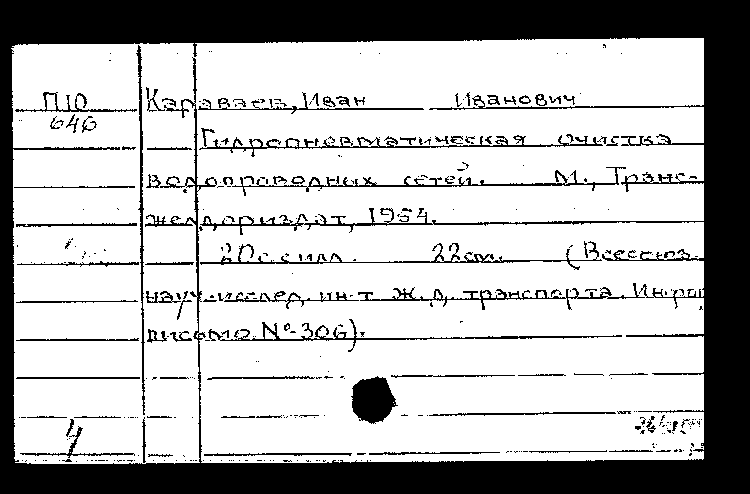 П10 Караваев, Иван Иванович
646
Гидропневматическая очистка
водопроводных сетей. М., Транс-
желдориздат, 1954.
20с. илл. 22см. (Всесоюз.
науч.-исслед. ин-т ж.д. транспорта. Информ
письмо № 306).
4